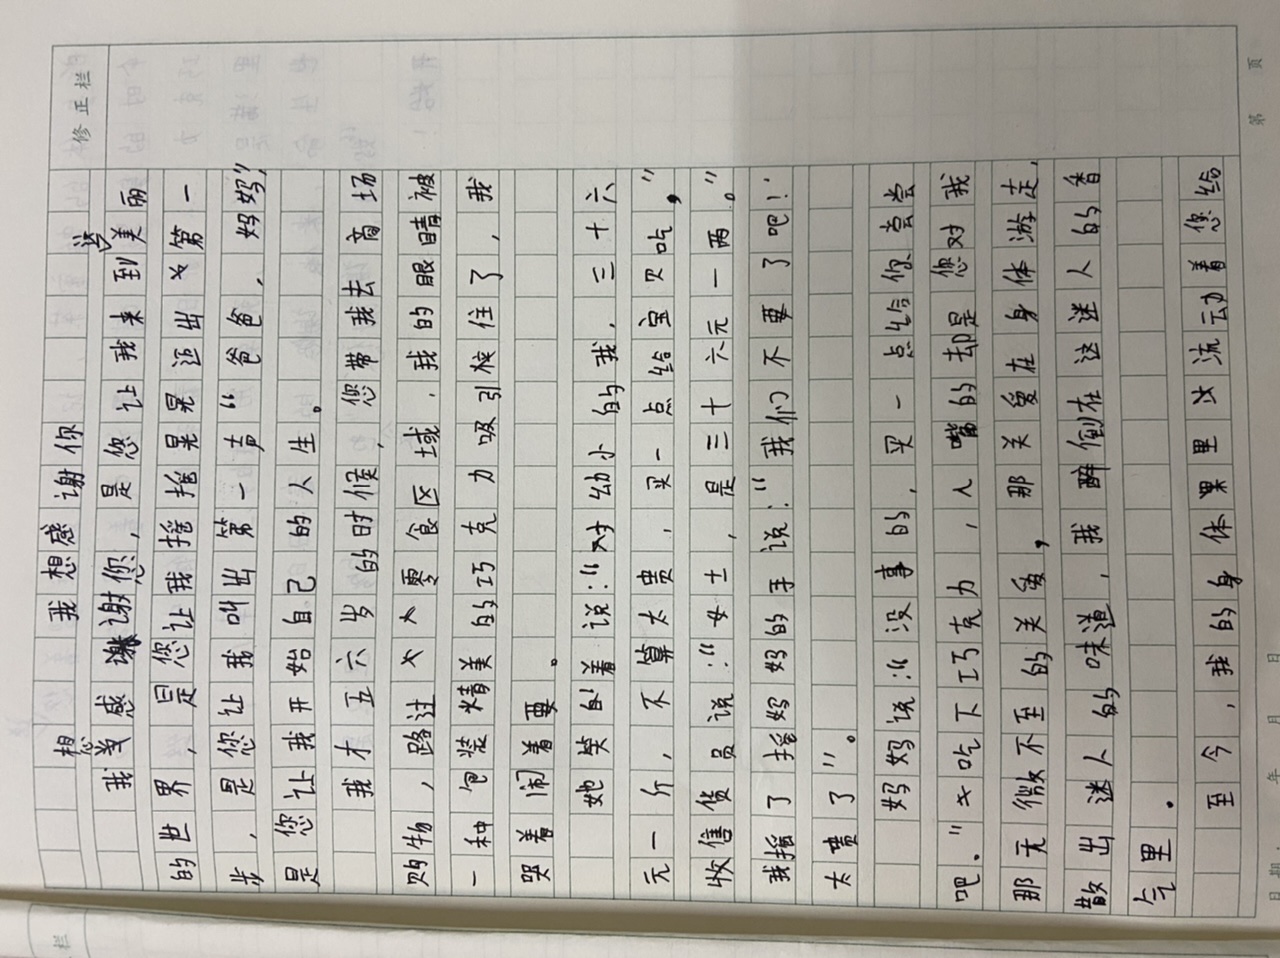 修正栏
我想感谢你
我想感谢您,是您让我来到美丽
的世界,是您让我摇摇晃晃迈出第一
步,是您让我叫出第一声“爸爸、妈妈”,
是您让我开始自己的人生。
我才五六岁的时候,您带我去商场
购物,路过零食区域,我的眼睛被
一种包装精美的巧克力吸引住了,我
哭着闹着要。
她笑着说:“对幼小的我,三十六
元一斤,不算太贵,买一点给宝贝吃,”
收售货员说:“女士,是三十六元一两。”
我摇了摇妈妈的手说:“我们不要了吧!
太贵了”。
妈妈说:“没事的,买一点给你尝尝
吧。”吃下巧克力,入嘴的却是您对我
那无微不至的关爱,那关爱在身体游走,
散出迷人的味道,我醉倒在这迷人的香
气里。
至今,我的身体里流动着您给
第 页
日期: 年 月 日
栏